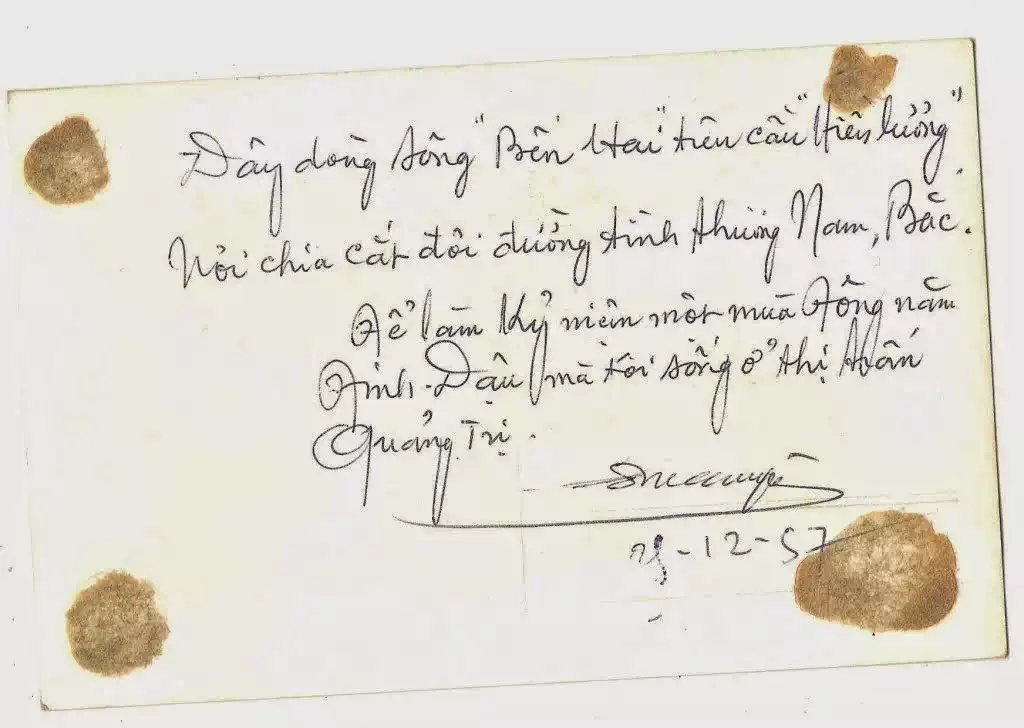 Đây dòng sông "Bến Hải" trên cầu "Hiền lương"
Nơi chia cắt đôi đường tình thương Nam, Bắc.
Để làm kỷ niệm một mùa đông năm
Đinh-Dậu mà tôi sống ở thị trấn
Quảng Trị.
-12-57